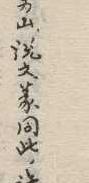 山說文篆同此